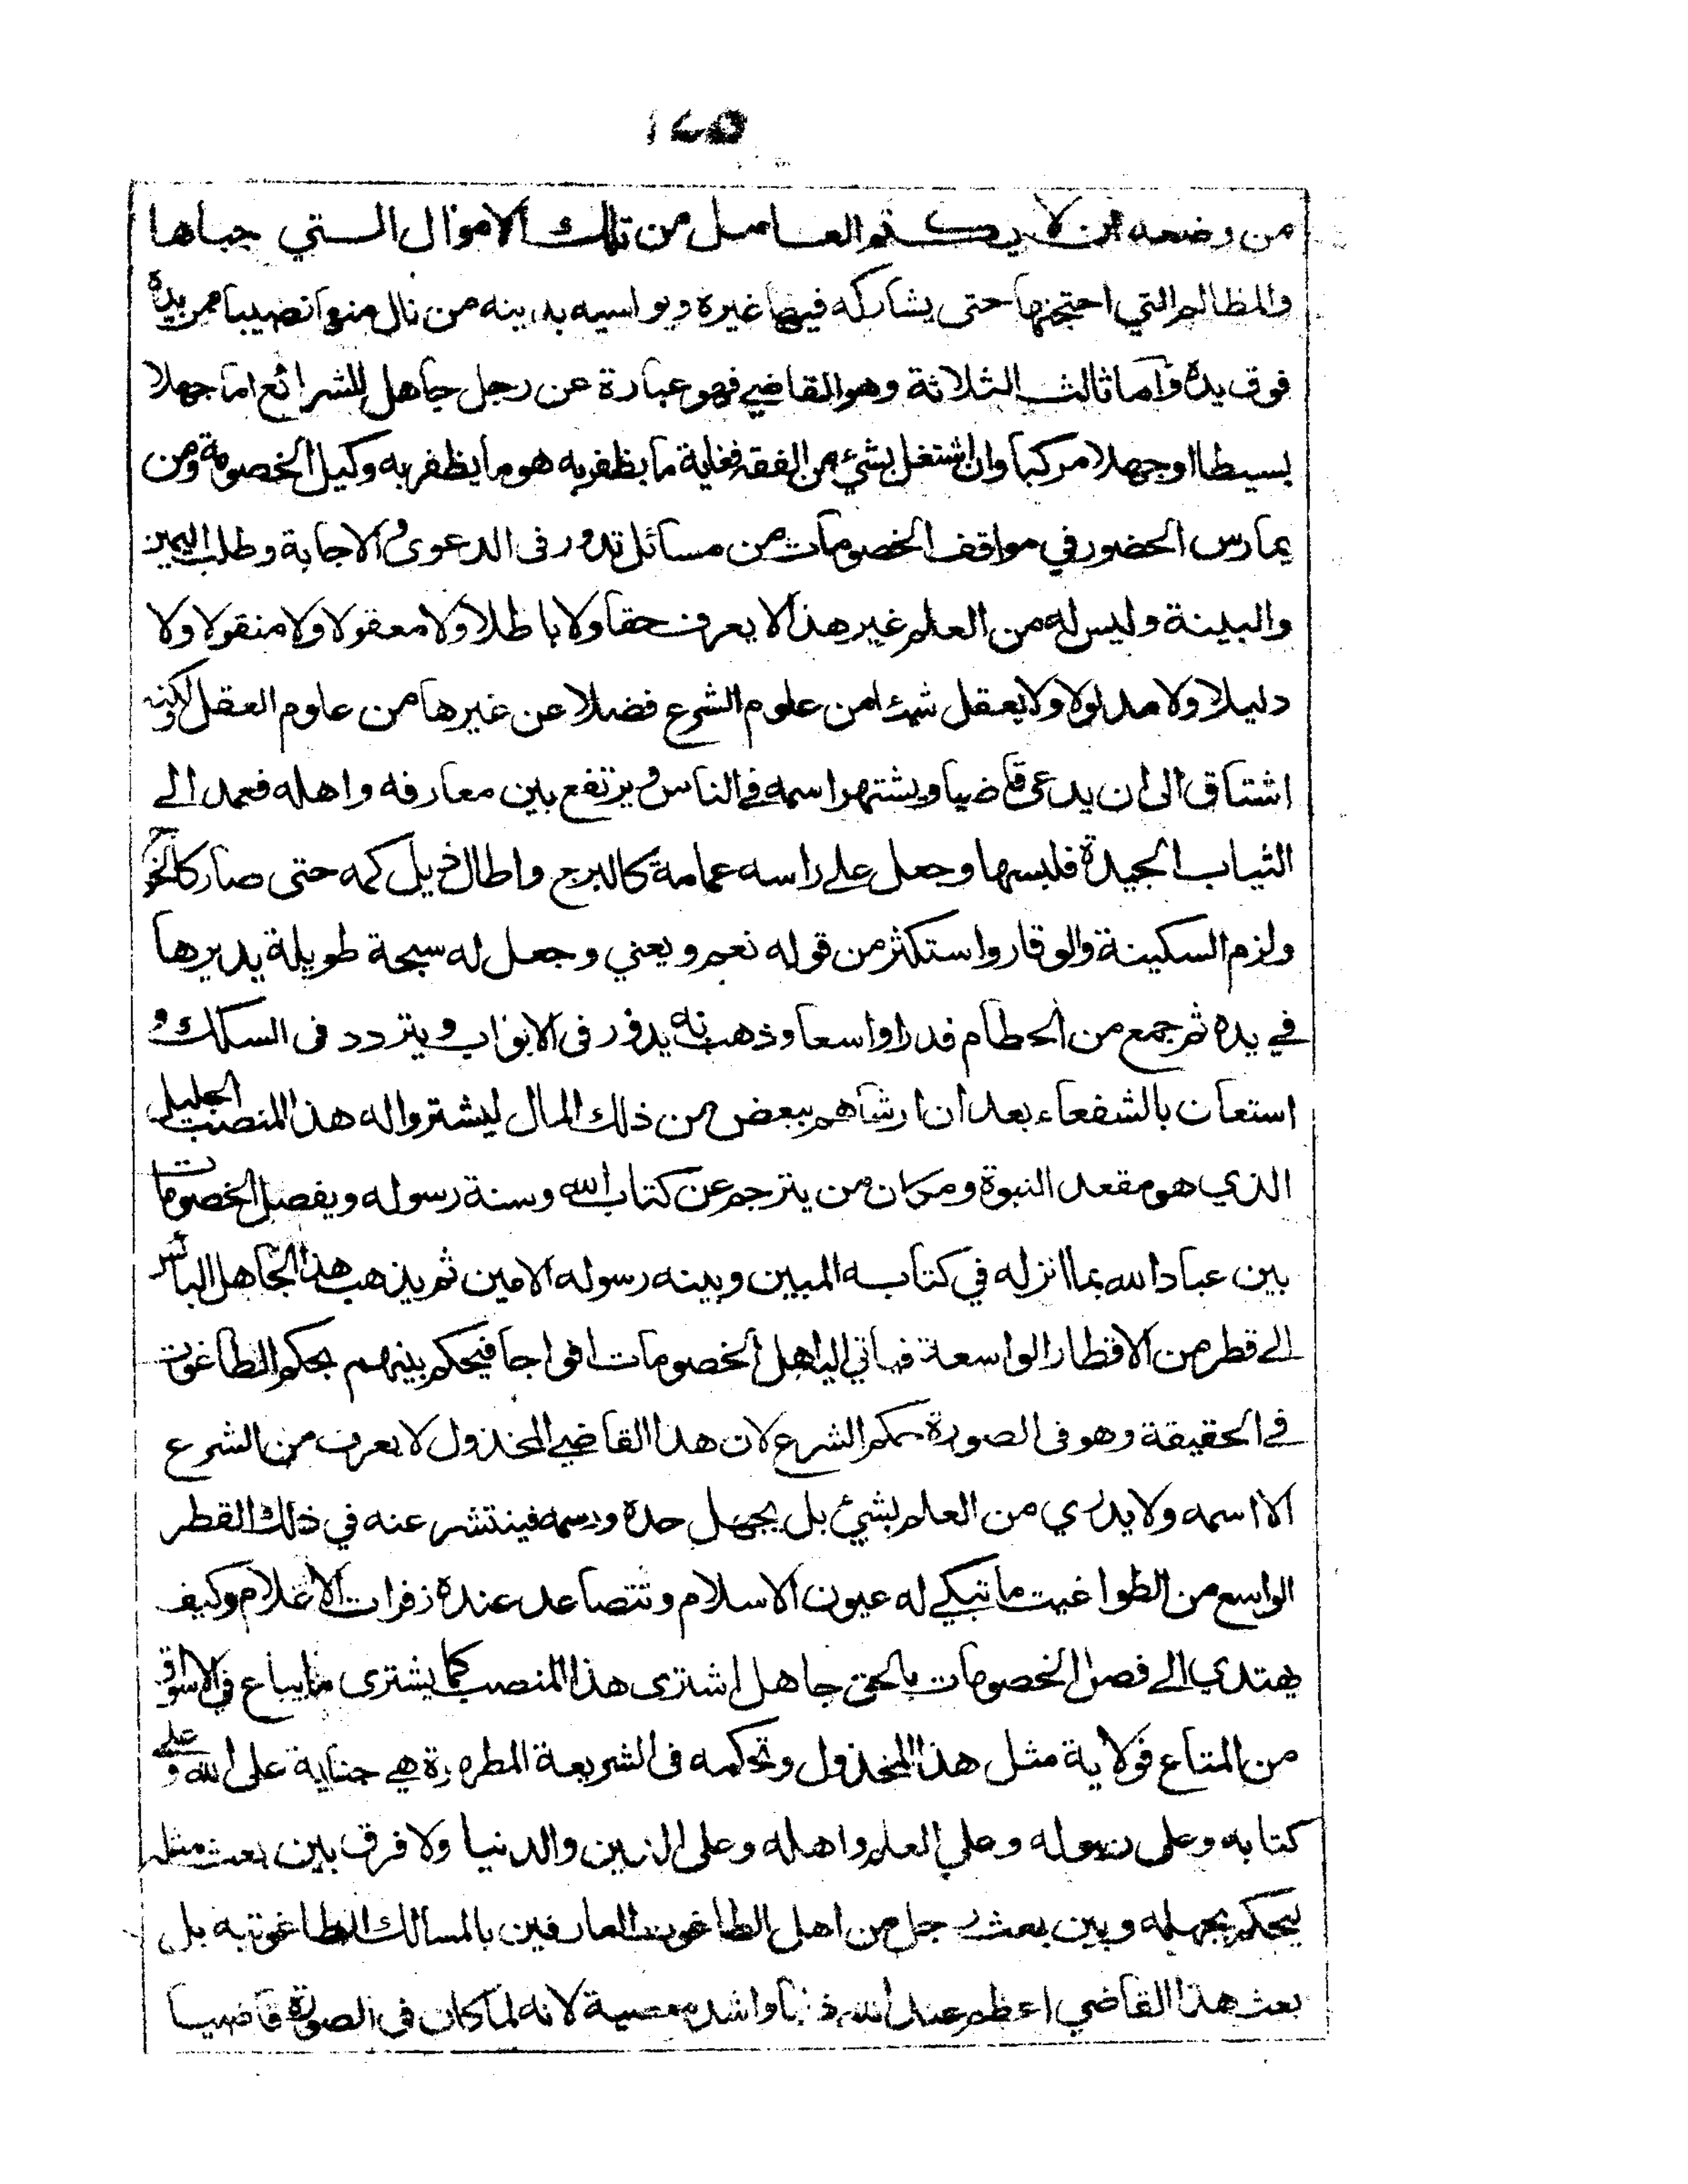 ١٢٥
من وضعه ان لا يكتم العامل من تلك الاموال التي جباها
والمظالم التي احتجنها حتى يشاركه فيها غيره ويواسيه بدينه من نال منها نصيبا ممن يده
فوق يده واما ثالث الثلاثة وهو القاضي فهو عبارة عن رجل جاهل للشرائع اما جهلا
بسيطا اوجهلا مركبا وان اشتغل بشيء من الفقه فغاية ما يظفر به هو ما يظفر به وكيل الخصومة ومن
يمارس الحضور في مواقف الخصومات من مسائل تدور في الدعوى والاجابة وطلب اليمين
والبينة وليس له من العلم غير هذا لا يعرف حقا ولا باطلا ولا معقولا ولا منقولا ولا
دليلا ولا مدلولا ولا يعقل شيئا من علوم الشرع فضلا عن غيرها من علوم العقل لكنه
اشتاق الى ان يدعى قاضيا ويشتهر اسمه في الناس ويرتفع بين معارفه واهله فعمد الى
الثياب الجيدة فلبسها وجعل على راسه عمامة كالبرج واطال ذيل كمه حتى صار كالخرج
ولزم السكينة والوقار واستكثر من قوله نعم ويعني وجعل له سبحة طويلة يديرها
في يده ثم جمع من الحطام قدرا واسعا وذهب به يدور في الابواب ويتردد في السكك و
استعان بالشفعاء بعد ان ارشاهم ببعض من ذلك المال ليشتروا له هذا المنصب الجليل
الذي هو مقعد النبوة ومكان من يترجم عن كتاب الله وسنة رسوله ويفصل الخصومات
بين عباد الله بما انزله في كتابه المبين وبينه رسوله الامين ثم يذهب هذا الجاهل البائس
الى قطر من الاقطار الواسعة فياتي اليه اهل الخصومات افواجا فيحكم بينهم بحكم الطاغوت
في الحقيقة وهو في الصورة حكم الشرع لان هذا القاضي المخذول لا يعرف من الشرع
الا اسمه ولا يدري من العلم بشيء بل يجهل حده ورسمه فينتشر عنه في ذلك القطر
الواسع من الطواغيت ما تبكي له عيون الاسلام وتتصاعد عنده زفرات الاعلام وكيف
يهتدي الى فصل الخصومات بالحق جاهل اشترى هذا المنصب كما يشترى ما يباع في الاسواق
من المتاع فولاية مثل هذا المخذول وتحكمه في الشريعة المطهرة هي جناية على الله وعلى
كتابه وعلى رسوله وعلى العلم واهله وعلى الدين والدنيا ولا فرق بين بعث مثله
ليحكم بجهله وبين بعث رجل من اهل الطاغوت العارفين بالمسالك الطاغوتية بل
بعث هذا القاضي اعظم عند الله ذنبا واشد معصية لانه لما كان في الصورة قاضيا